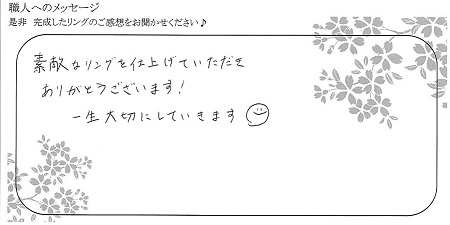 職人へのメッセージ
是非 完成したリングのご感想をお聞かせください♪
素敵なリングを仕上げていただき
ありがとうございます!
一生大切にしていきます